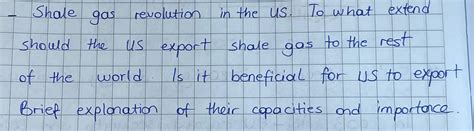 - Shale gas revolution in the US. To what extend
should the US export shale gas to the rest
of the world Is it beneficial for US to export
Brief explanation of their capacities and importance.